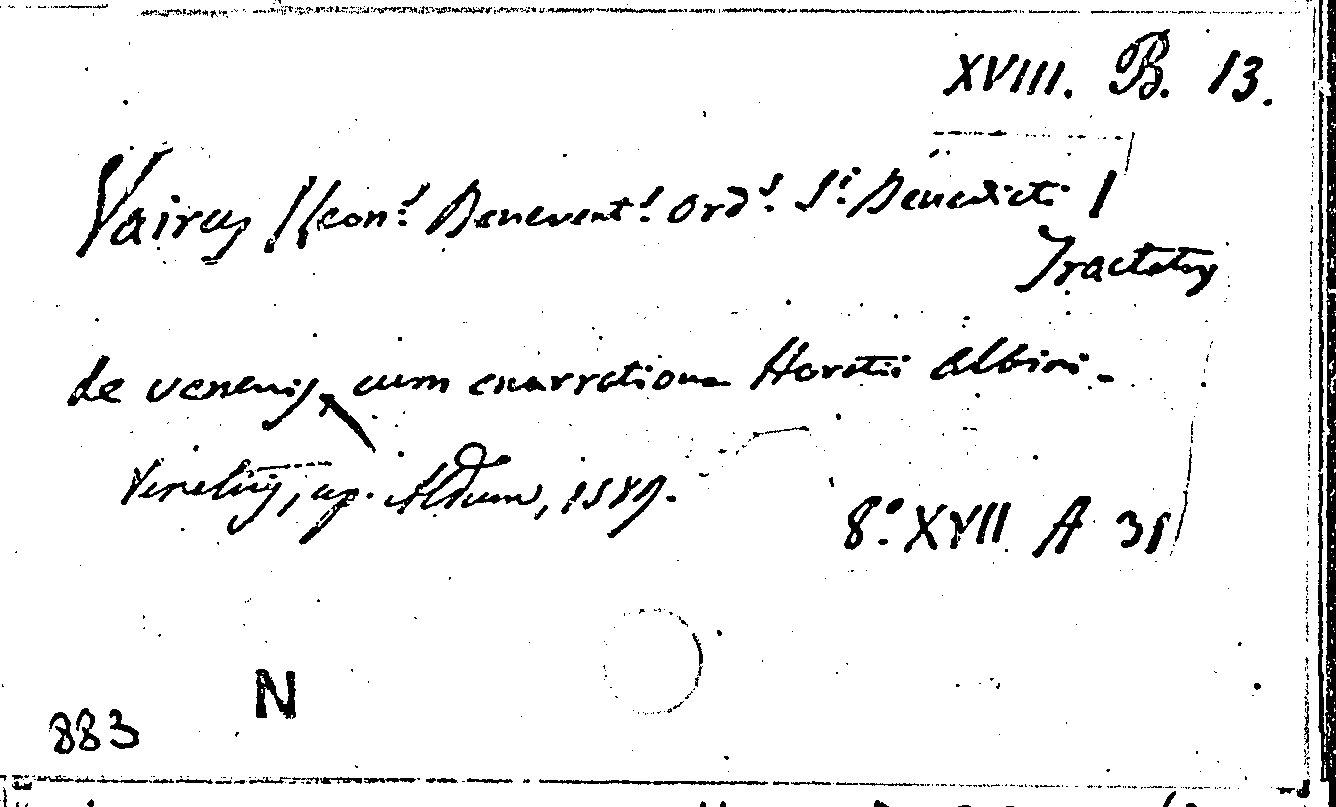 XVIII. B. 13.
Vairus /Leon.s Benevent.s Ord.s S.i Benedicti /
Tractatus
de venenis, cum enarratione Horatii Albini.
Venetiis, ap. Aldum, 1589.
8.o XVII A 31
N
883